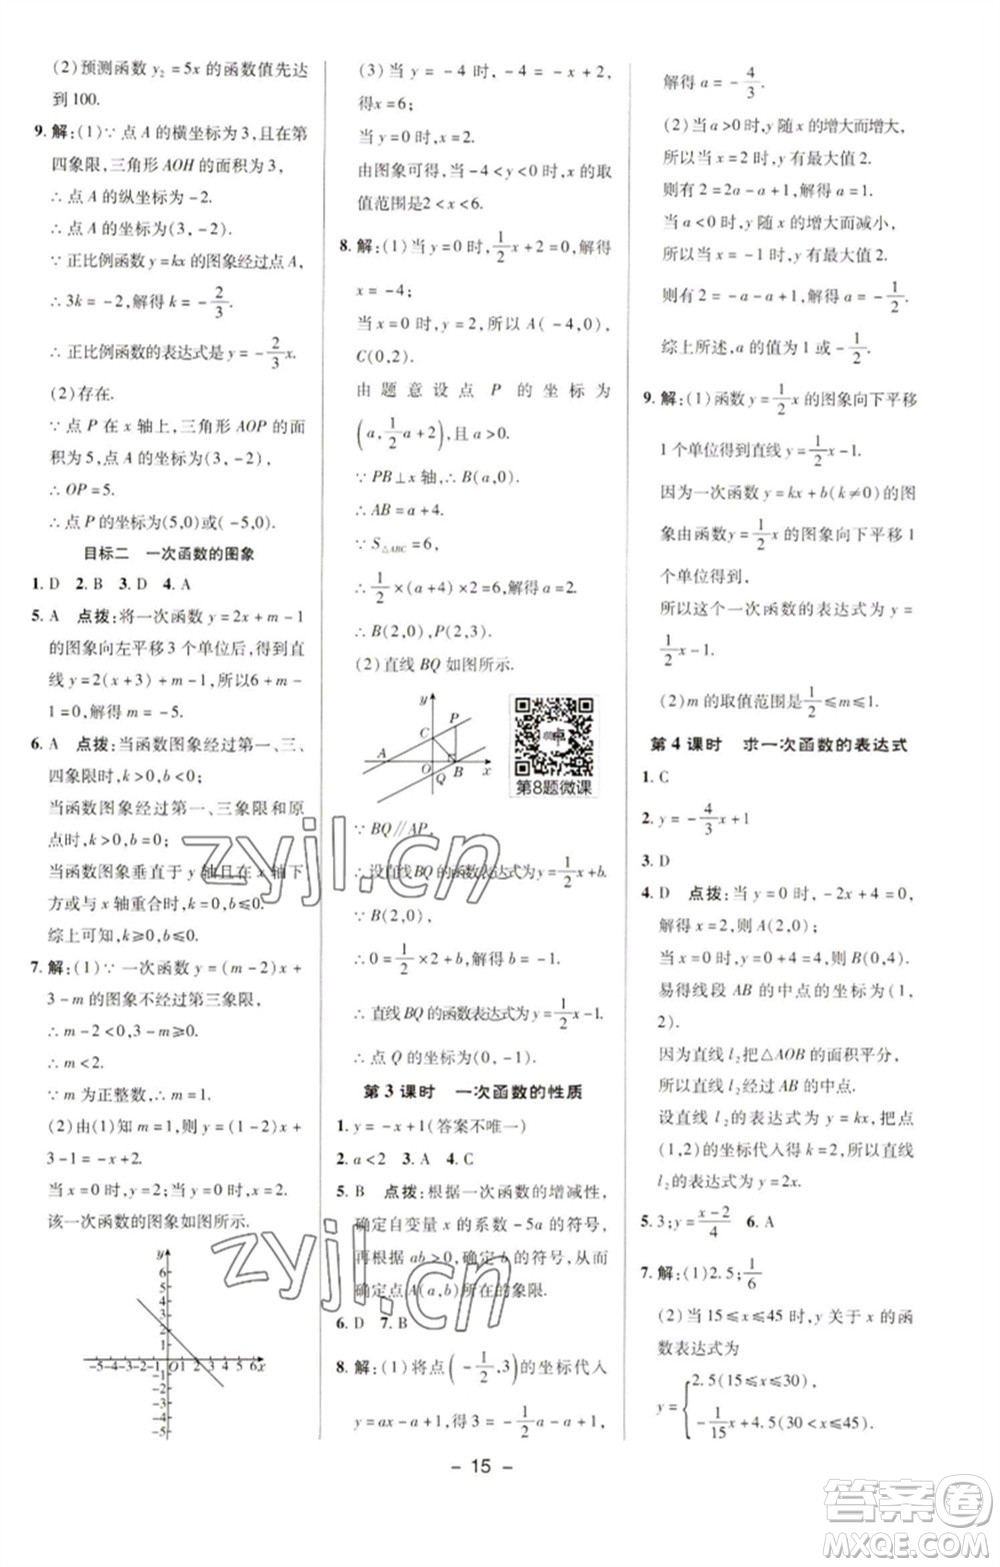 (2)预测函数 y₂=5x 的函数值先达
到100.
9. 解:(1)∵点 A 的横坐标为3,且在第
四象限,三角形 AOH 的面积为3,
∴点 A 的纵坐标为-2.
∴点 A 的坐标为(3,-2).
∵正比例函数 y=kx 的图象经过点 A,
∴3k=-2,解得 k=-2/3.
∴正比例函数的表达式是 y=-2/3x.
(2)存在.
∵点 P 在 x 轴上,三角形 AOP 的面
积为5,点 A 的坐标为(3,-2),
∴OP=5.
∴点 P 的坐标为(5,0)或(-5,0).
目标二 一次函数的图象
1. D 2. B 3. D 4. A
5. A 点拨:将一次函数 y=2x+m-1
的图象向左平移3个单位后,得到直
线 y=2(x+3)+m-1,所以6+m-
1=0,解得 m=-5.
6. A 点拨:当函数图象经过第一、三、
四象限时,k>0,b<0;
当函数图象经过第一、三象限和原
点时,k>0,b=0;
当函数图象垂直于 y 轴且在 x 轴下
方或与 x 轴重合时,k=0,b≤0.
综上可知,k≥0,b≤0.
7. 解:(1)∵一次函数 y=(m-2)x+
3-m 的图象不经过第三象限,
∴m-2<0,3-m≥0.
∴m<2.
∵m 为正整数,∴m=1.
(2)由(1)知 m=1,则 y=(1-2)x+
3-1=-x+2.
当 x=0 时,y=2,当 y=0 时,x=2.
该一次函数的图象如图所示.
y
6
5
4
3
2
1
-5-4-3-2-1 O 1 2 3 4 5 6 x
-1
-2
-3
-4
-5
(3)当 y=-4 时,-4=-x+2,
得 x=6;
当 y=0 时,x=2.
由图象可得,当-4<y<0时,x的取
值范围是2<x<6.
8. 解:(1)当 y=0 时,1/2x+2=0,解得
x=-4;
当 x=0 时,y=2,所以 A(-4,0),
C(0,2).
由题意设点 P 的坐标为
(a,1/2a+2),且 a>0.
∵PB⊥x 轴,∴B(a,0).
∴AB=a+4.
∵S△ABC=6,
∴1/2×(a+4)×2=6,解得 a=2.
∴B(2,0),P(2,3).
(2)直线 BQ 如图所示.
y
P
C
A O B x
Q
第8题微课
∵BQ∥AP,
∴设直线BQ的函数表达式为y=1/2x+b.
∵B(2,0),
∴0=1/2×2+b,解得 b=-1.
∴直线BQ的函数表达式为y=1/2x-1.
∴点 Q 的坐标为(0,-1).
第3课时 一次函数的性质
1. y=-x+1(答案不唯一)
2. a<2 3. A 4. C
5. B 点拨:根据一次函数的增减性,
确定自变量 x 的系数-5a 的符号,
再根据 ab>0,确定 b 的符号,从而
确定点A(a,b)所在的象限.
6. D 7. B
8. 解:(1)将点(-1/2,3)的坐标代入
y=ax-a+1,得 3=-1/2a-a+1,
解得 a=-4/3.
(2)当 a>0 时,y 随 x 的增大而增大,
所以当 x=2 时,y 有最大值2.
则 2=2a-a+1,解得 a=1.
当 a<0 时,y 随 x 的增大而减小,
所以当 x=-1 时,y 有最大值2.
则 2=-a-a+1,解得 a=-1/2.
综上所述,a 的值为1 或-1/2.
9. 解:(1)函数 y=1/2x 的图象向下平移
1个单位得到直线 y=1/2x-1.
因为一次函数 y=kx+b(k≠0)的图
象由函数 y=1/2x 的图象向下平移1个
单位得到,
所以这个一次函数的表达式为 y=
1/2x-1.
(2)m 的取值范围是1/2≤m≤1.
第4课时 求一次函数的表达式
1. C
2. y=-4/3x+1
3. D
4. D 点拨:当 y=0 时,-2x+4=0,
解得 x=2,则 A(2,0);
当 x=0 时,y=0+4=4,则 B(0,4).
易得线段 AB 的中点的坐标为(1,
2).
因为直线 l₂把△AOB的面积平分,
所以直线 l₂经过 AB 的中点.
设直线 l₂的表达式为 y=kx,把点
(1,2)的坐标代入得 k=2,所以直线
l₂的表达式为 y=2x.
5. 3;y=(x-2)/4 6. A
7. 解:(1)2.5;1/6
(2)当 15≤x≤45 时,y 关于 x 的函
数表达式为
y={2.5(15≤x≤30),
-1/15x+4.5(30<x≤45).
- 15 -
zyjl.cn
zyjl.cn
答案卷
MXQE.COM